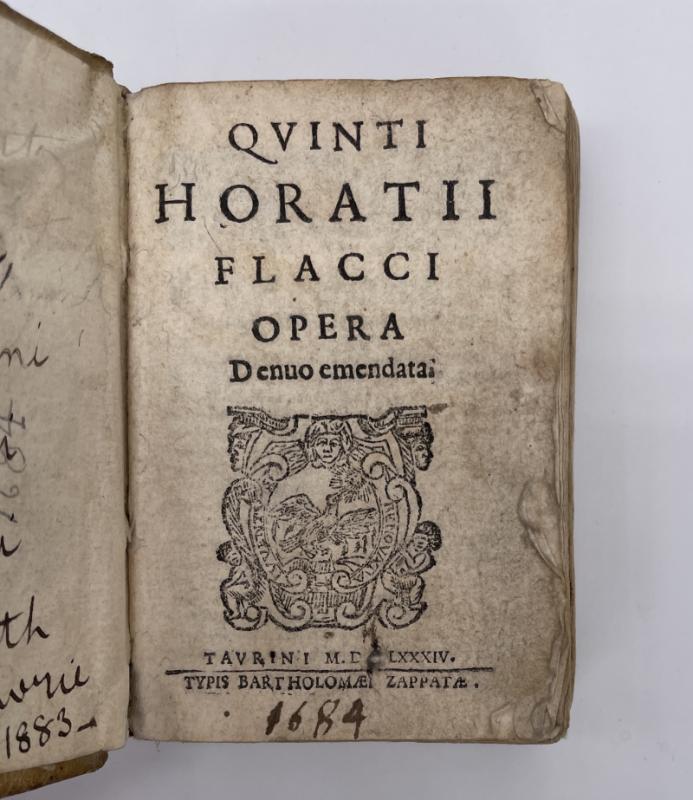 QVINTI
HORATII
FLACCI
OPERA
Denuo emendata.
TAVRINI M.D LXXXIV.
TYPIS BARTHOLOMÆI ZAPPATÆ.
1684
ni
1684
th
1883